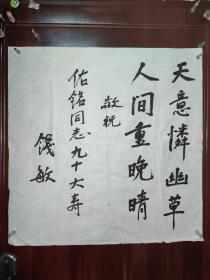 天意憐幽草
人间重晚晴
敬祝
佑铭同志九十大寿
钱敏